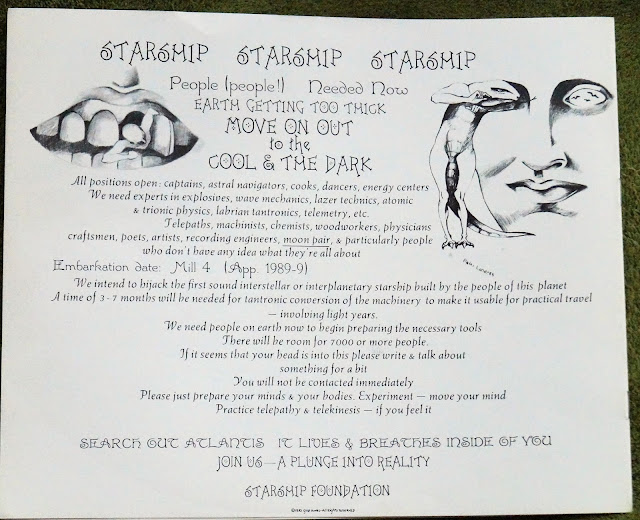 STARSHIP STARSHIP STARSHIP
People (people!) Needed Now
EARTH GETTING TOO THICK
MOVE ON OUT
to the
COOL & THE DARK
All positions open: captains, astral navigators, cooks, dancers, energy centers
We need experts in explosives, wave mechanics, lazer technics, atomic
& trionic physics, labrian tantronics, telemetry, etc.
Telepaths, machinists, chemists, woodworkers, physicians
craftsmen, poets, artists, recording engineers, moon pair, & particularly people
who don't have any idea what they're all about
Embarkation date: Mill 4 (App. 1989-9)
We intend to hijack the first sound interstellar or interplanetary starship built by the people of this planet
A time of 3-7 months will be needed for tantronic conversion of the machinery to make it usable for practical travel
— involving light years.
We need people on earth now to begin preparing the necessary tools
There will be room for 7000 or more people.
If it seems that your head is into this please write & talk about
something for a bit
You will not be contacted immediately
Please just prepare your minds & your bodies. Experiment — move your mind
Practice telepathy & telekinesis — if you feel it
SEARCH OUT ATLANTIS IT LIVES & BREATHES INSIDE OF YOU
JOIN US—A PLUNGE INTO REALITY
STARSHIP FOUNDATION